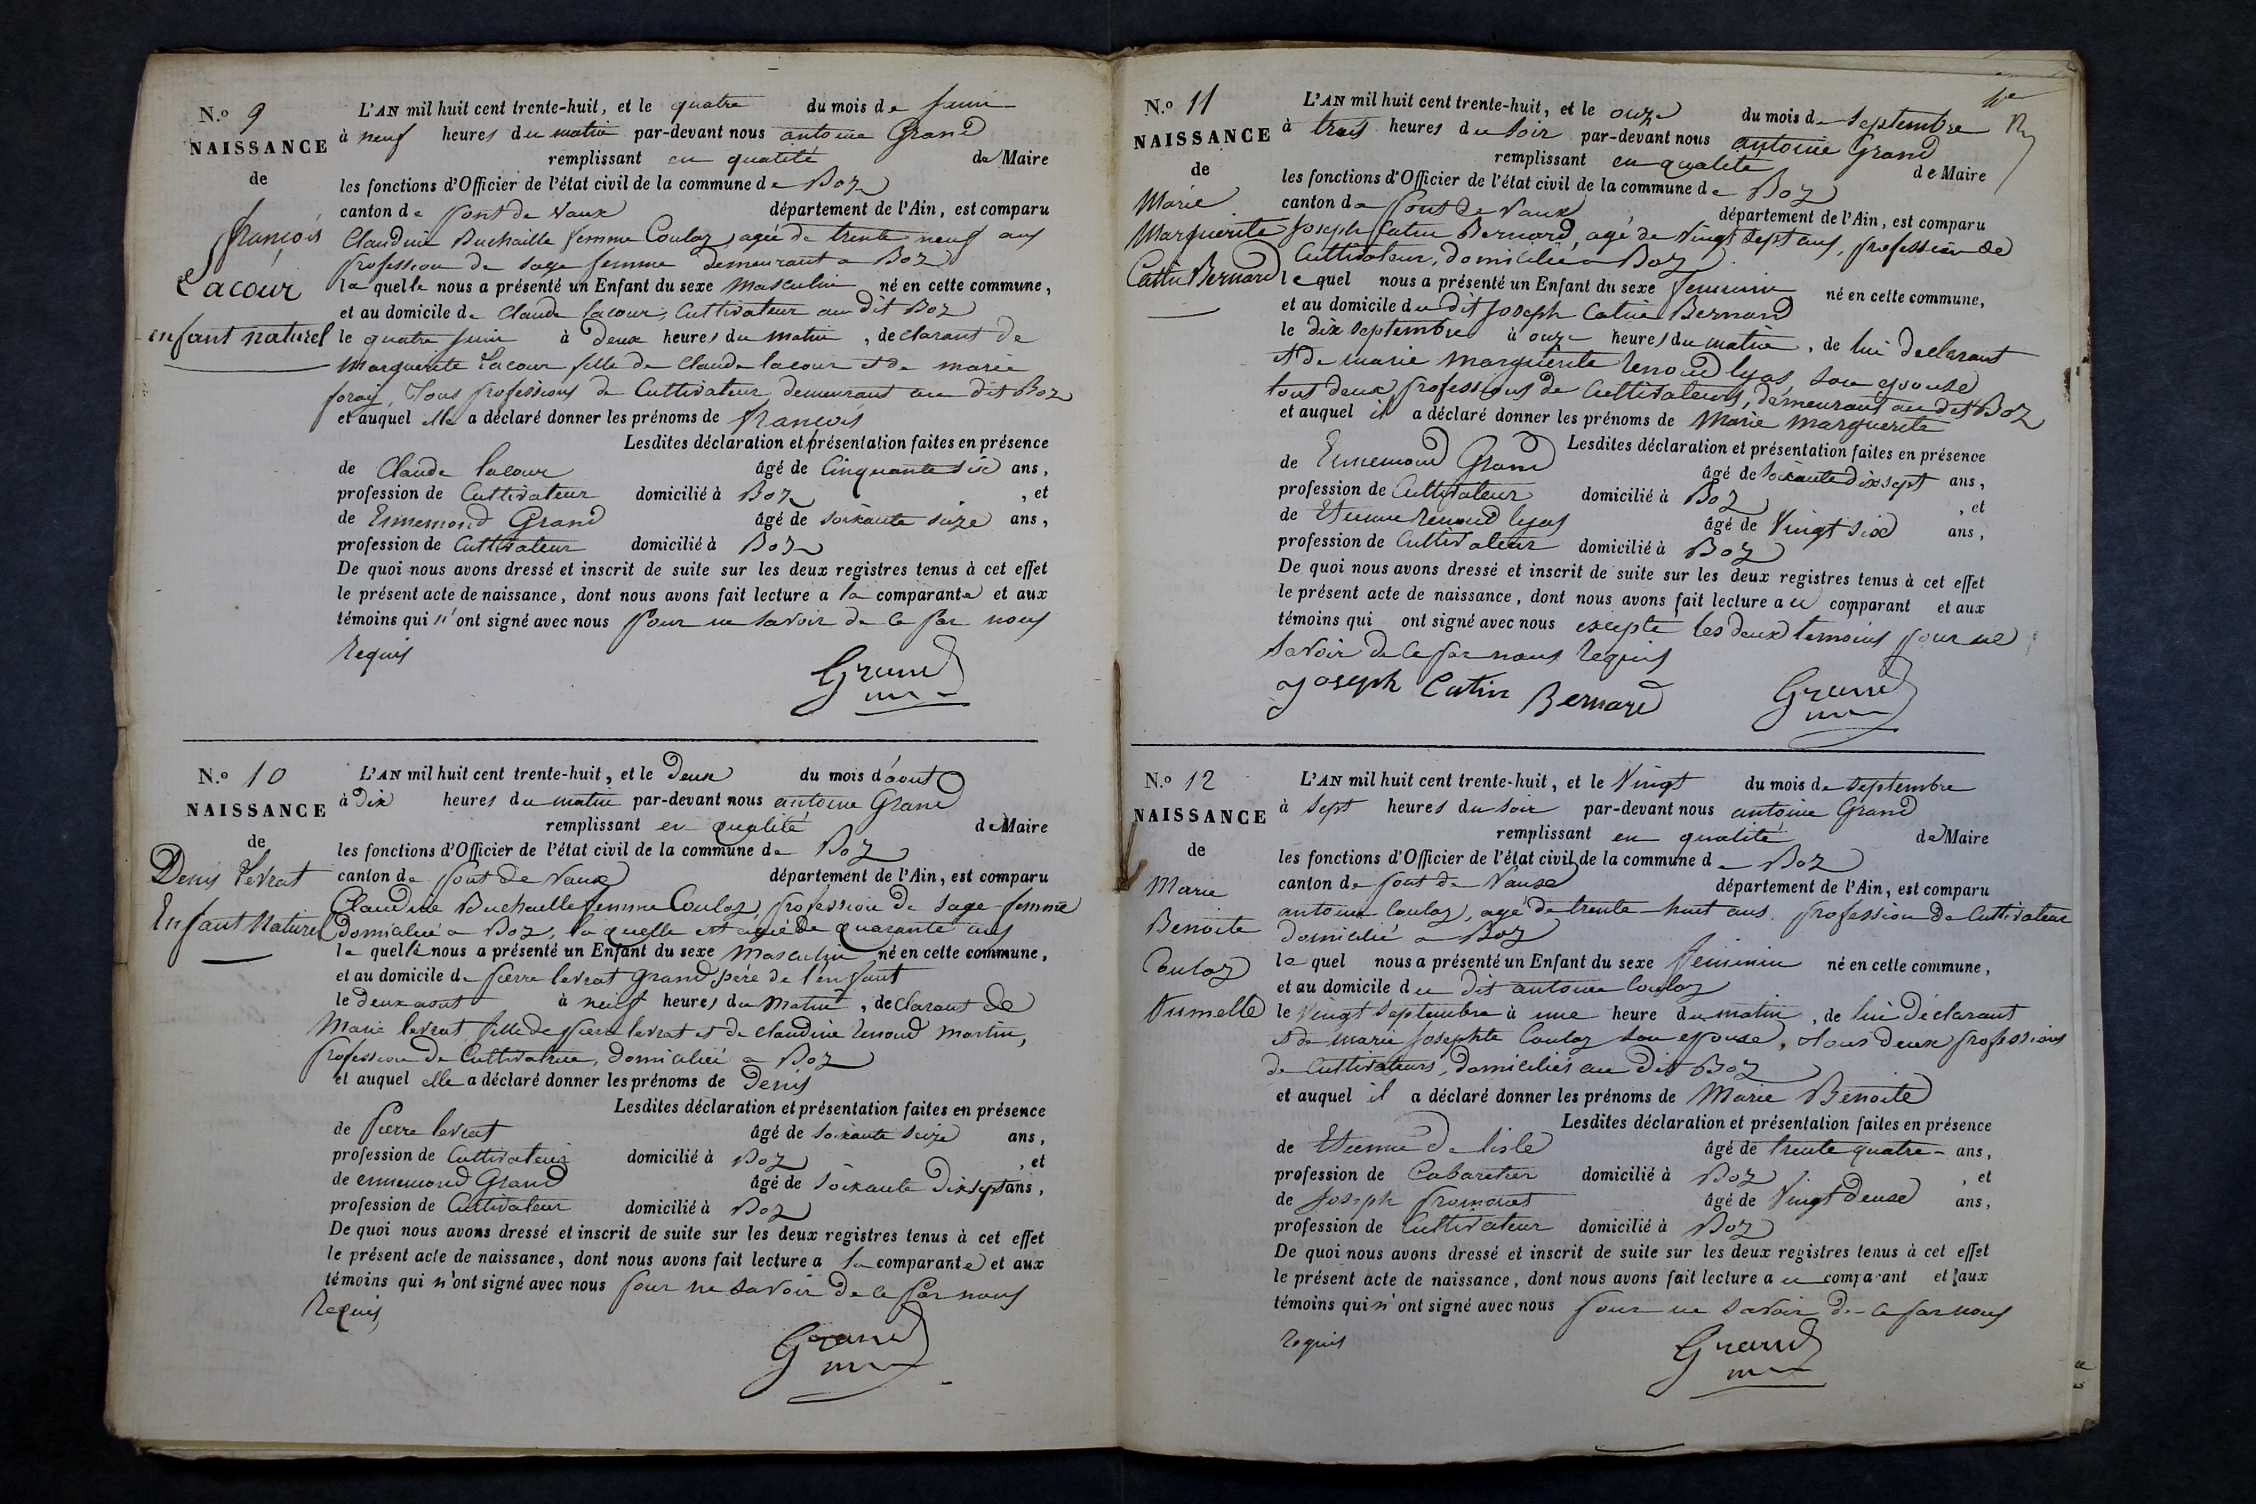 N.º 9
NAISSANCE
de
françois
Lacour
enfant naturel
L'AN mil huit cent trente-huit, et le quatre du mois de juin
à neuf heures du matin par-devant nous antoine Grand
remplissant en qualité de Maire
les fonctions d'Officier de l'état civil de la commune de Boz
canton de pont de Vaux département de l'Ain, est comparu
Claudine Buchaille femme Couloz agée de trente neuf ans
profession de sage femme demeurant a Boz
laquelle nous a présenté un Enfant du sexe Masculin né en cette commune,
et au domicile de Claude lacour, Cultivateur au dit Boz
le quatre juin à deux heures du matin, declarant de
Marguerite Lacour fille de Claude lacour et de marie
foray, Tous professions de Cultivateur demeurant au dit Boz
et auquel elle a déclaré donner les prénoms de françois
Lesdites déclaration et présentation faites en présence
de Claude lacour âgé de Cinquante six ans,
profession de Cultivateur domicilié à Boz, et
de Ennemond Grand âgé de soixante seize ans,
profession de Cultivateur domicilié à Boz
De quoi nous avons dressé et inscrit de suite sur les deux registres tenus à cet effet
le présent acte de naissance, dont nous avons fait lecture a la comparante et aux
témoins qui n'ont signé avec nous pour ne savoir de ce par nous
requis
Grand
N.º 10
NAISSANCE
de
Denis levrat
Enfant Naturel
L'AN mil huit cent trente-huit, et le deux du mois d'aout
à dix heures du matin par-devant nous antoine Grand
remplissant en qualité de Maire
les fonctions d'Officier de l'état civil de la commune de Boz
canton de pont de Vaux département de l'Ain, est comparu
Claudine Buchaille femme Couloz, profession de sage femme
domiciliée a Boz, laquelle est agée de quarante ans
laquelle nous a présenté un Enfant du sexe Masculin né en cette commune,
et au domicile de pierre levrat grand père de l'enfant
le deux aout à neuf heures du matin, declarant de
Marie levrat fille de pierre levrat et de claudine renoud martin,
profession de Cultivatrice, domiciliée a Boz
et auquel elle a déclaré donner les prénoms de Denis
Lesdites déclaration et présentation faites en présence
de Pierre levrat âgé de soixante seize ans,
profession de Cultivateur domicilié à Boz, et
de ennemond Grand âgé de soixante dix sept ans,
profession de Cultivateur domicilié à Boz
De quoi nous avons dressé et inscrit de suite sur les deux registres tenus à cet effet
le présent acte de naissance, dont nous avons fait lecture a la comparante et aux
témoins qui n'ont signé avec nous pour ne savoir de ce par nous
requis
Grand
N.º 11
NAISSANCE
de
Marie
Marguerite
Catin Bernard
L'AN mil huit cent trente-huit, et le onze du mois de septembre
à trois heures du soir par-devant nous antoine Grand
remplissant en qualité de Maire
les fonctions d'Officier de l'état civil de la commune de Boz
canton de pont de Vaux département de l'Ain, est comparu
Joseph Catin Bernard, agé de vingt sept ans, profession de
Cultivateur, domicilié a Boz
lequel nous a présenté un Enfant du sexe feminin né en cette commune,
et au domicile du dit joseph Catin Bernard
le dix septembre à onze heures du matin, de lui declarant
et de marie marguerite renoud lyas, son epouse
tout deux professions de Cultivateurs, demeurant au dit Boz
et auquel il a déclaré donner les prénoms de Marie Marguerite
Lesdites déclaration et présentation faites en présence
de Ennemond Grand âgé de soixante dix sept ans,
profession de Cultivateur domicilié à Boz, et
de Etienne renoud lyas âgé de Vingt six ans,
profession de Cultivateur domicilié à Boz
De quoi nous avons dressé et inscrit de suite sur les deux registres tenus à cet effet
le présent acte de naissance, dont nous avons fait lecture a u comparant et aux
témoins qui ont signé avec nous excepté les deux temoins pour ne
savoir de ce par nous requis
Joseph Catin Bernard Grand
N.º 12
NAISSANCE
de
Marie
Benoite
Couloz
Dumelle
L'AN mil huit cent trente-huit, et le Vingt du mois de septembre
à sept heures du soir par-devant nous antoine Grand
remplissant en qualité de Maire
les fonctions d'Officier de l'état civil de la commune de Boz
canton de pont de Vaux département de l'Ain, est comparu
antoine Couloz, agé de trente-huit ans. profession de Cultivateur
domicilié a Boz
lequel nous a présenté un Enfant du sexe feminin né en cette commune,
et au domicile du dit antoine Couloz
le Vingt septembre à une heure du matin, de lui déclarant
et de marie josephte Couloz son epouse, tous deux professions
de Cultivateurs, domiciliés au dit Boz
et auquel il a déclaré donner les prénoms de Marie Benoite
Lesdites déclaration et présentation faites en présence
de Etienne De lisle âgé de trente quatre ans,
profession de Cabaretier domicilié à Boz, et
de Joseph promonet âgé de Vingt deux ans,
profession de Cultivateur domicilié à Boz
De quoi nous avons dressé et inscrit de suite sur les deux registres tenus à cet effet
le présent acte de naissance, dont nous avons fait lecture a u comparant et aux
témoins qui n'ont signé avec nous pour ne savoir de ce par nous
requis
Grand